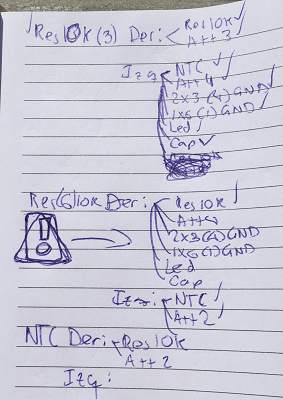 Res10K (3) Der: Res10K ✓
A++3 ✓
Izq NTC ✓
A++4 ✓
2x3(4) GND ✓
1x6(1) GND ✓
Led ✓
Cap ✓
Res(6)10K Der: Res10K ✓
A++4
2x3(4) GND
1x6(1) GND
Led
Cap
!
Izq: NTC ✓
A++2 ✓
NTC Der: Res10K
A++2
Izq: